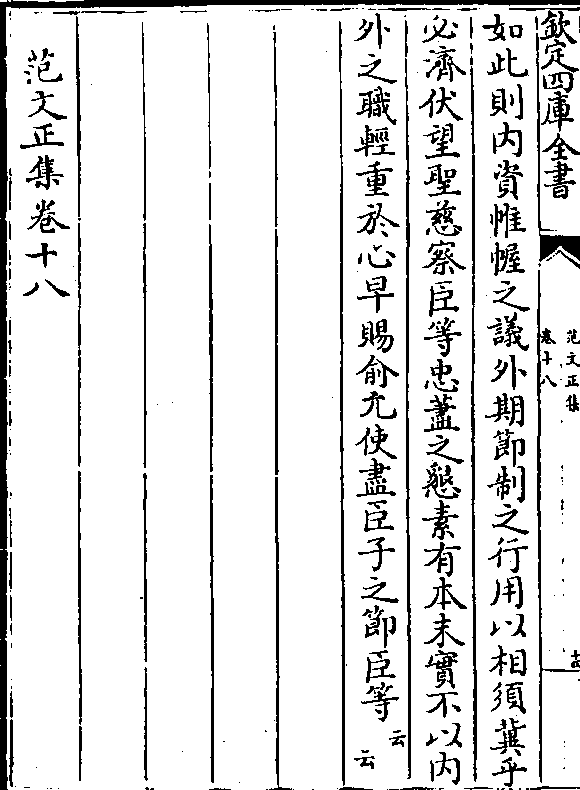 欽定四庫全書
范文正集
卷十八
如此則内資帷幄之議外期節制之行用以相須冀乎
必濟伏望聖慈察臣等忠藎之懇素有本末實不以内
外之職輕重於心早賜俞允使盡臣子之節臣等云云
范文正集卷十八